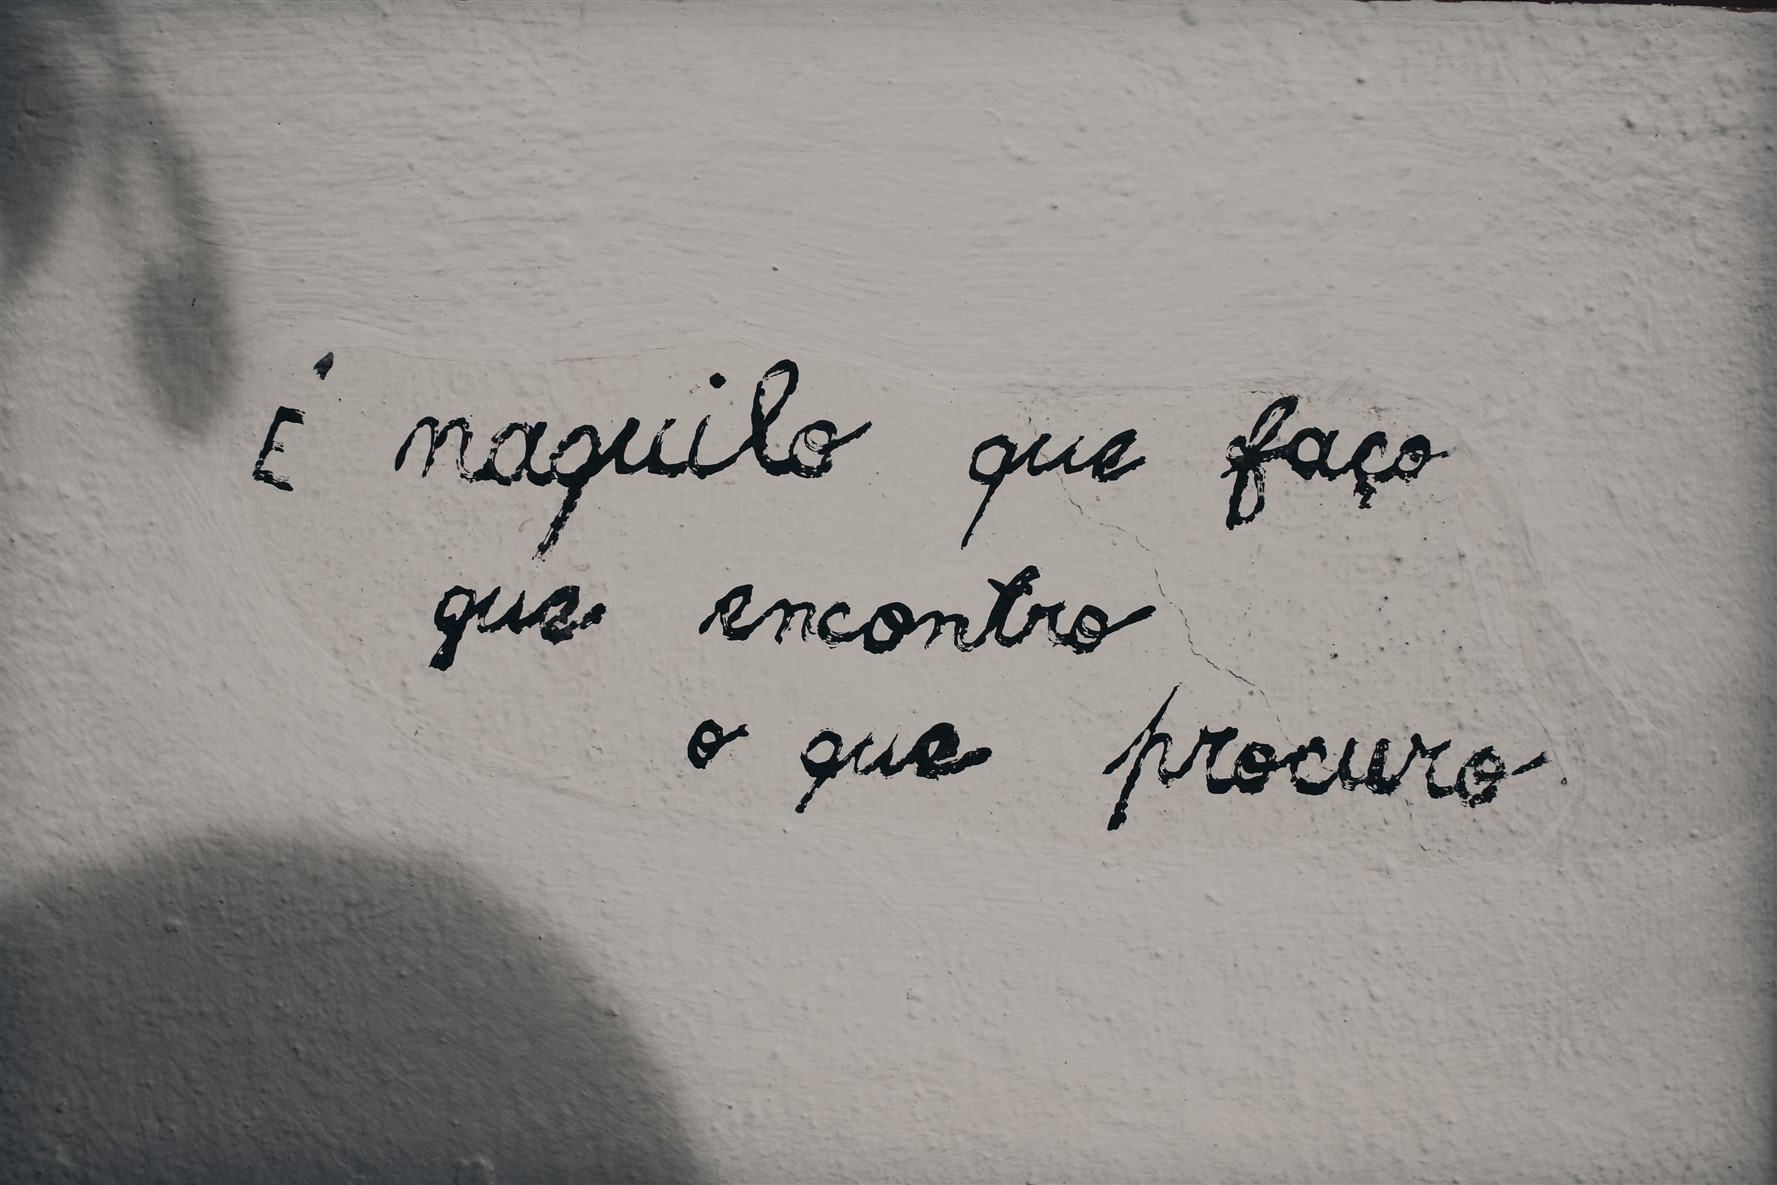 É naquilo que faço
que encontro
o que procuro